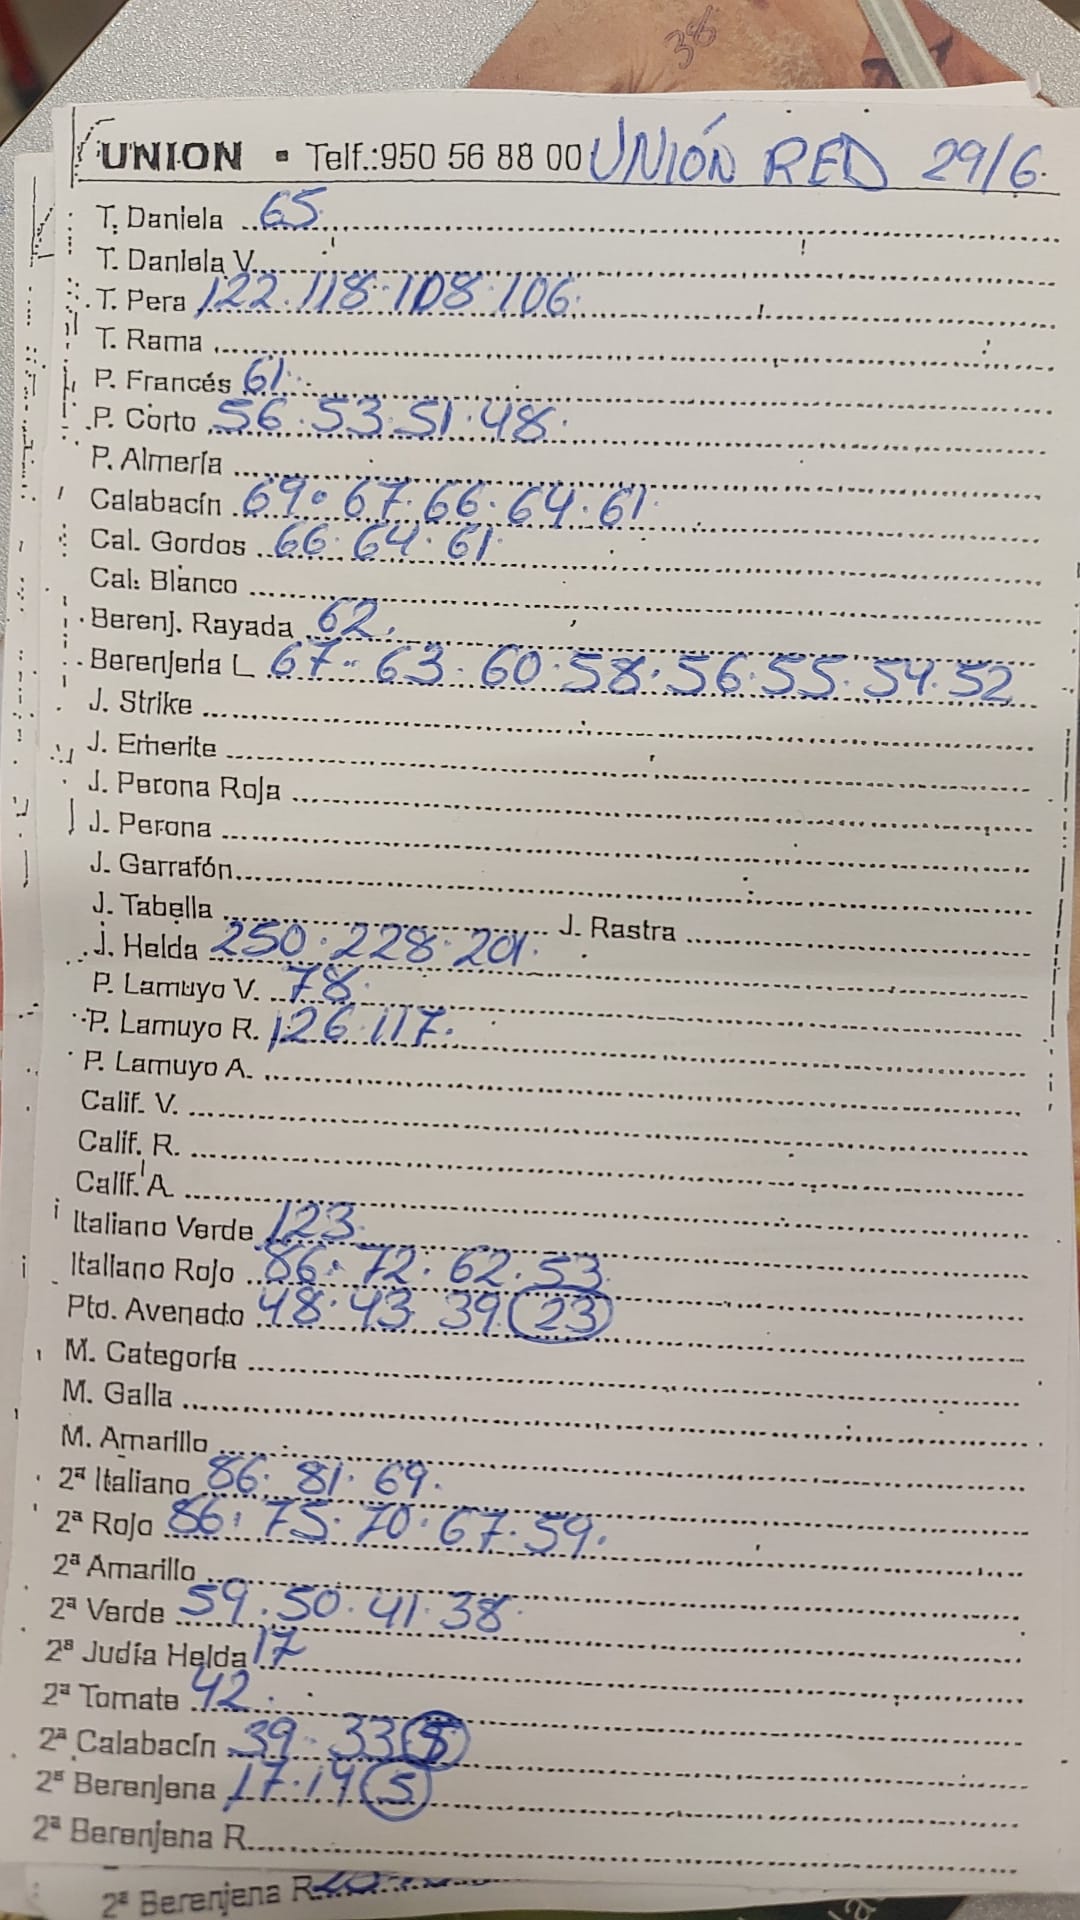 38
UNION ▪ Telf.:950 56 88 00 UNIÓN RED 29/6.
T. Daniela 65.
T. Daniela V.
T. Pera 122.118.108.106.
T. Rama
P. Francés 61.
P. Corto 56.53.51.48.
P. Almería
Calabacín 69.67.66.64.61.
Cal. Gordos 66.64.61.
Cal. Blanco
Berenj. Rayada 62.
Berenjena L 67.63.60.58.56.55.54.52
J. Strike
J. Emerite
J. Perona Roja
J. Perona
J. Garrafón
J. Tabella J. Rastra
J. Helda 250.228.201.
P. Lamuyo V. 78.
P. Lamuyo R. 126.117.
P. Lamuyo A.
Calif. V.
Calif. R.
Calif. A.
Italiano Verde 123.
Italiano Rojo 86.72.62.53.
Pto. Avenado 48.43.39.23
M. Categoría
M. Galia
M. Amarillo
2ª Italiano 86.81.69.
2ª Rojo 86.75.70.67.59.
2ª Amarillo
2ª Verde 59.50.41.38.
2ª Judía Helda 17
2ª Tomate 42.
2ª Calabacín 39.33
2ª Berenjena 17.14 5
2ª Berenjena R.
2ª Berenjena R.